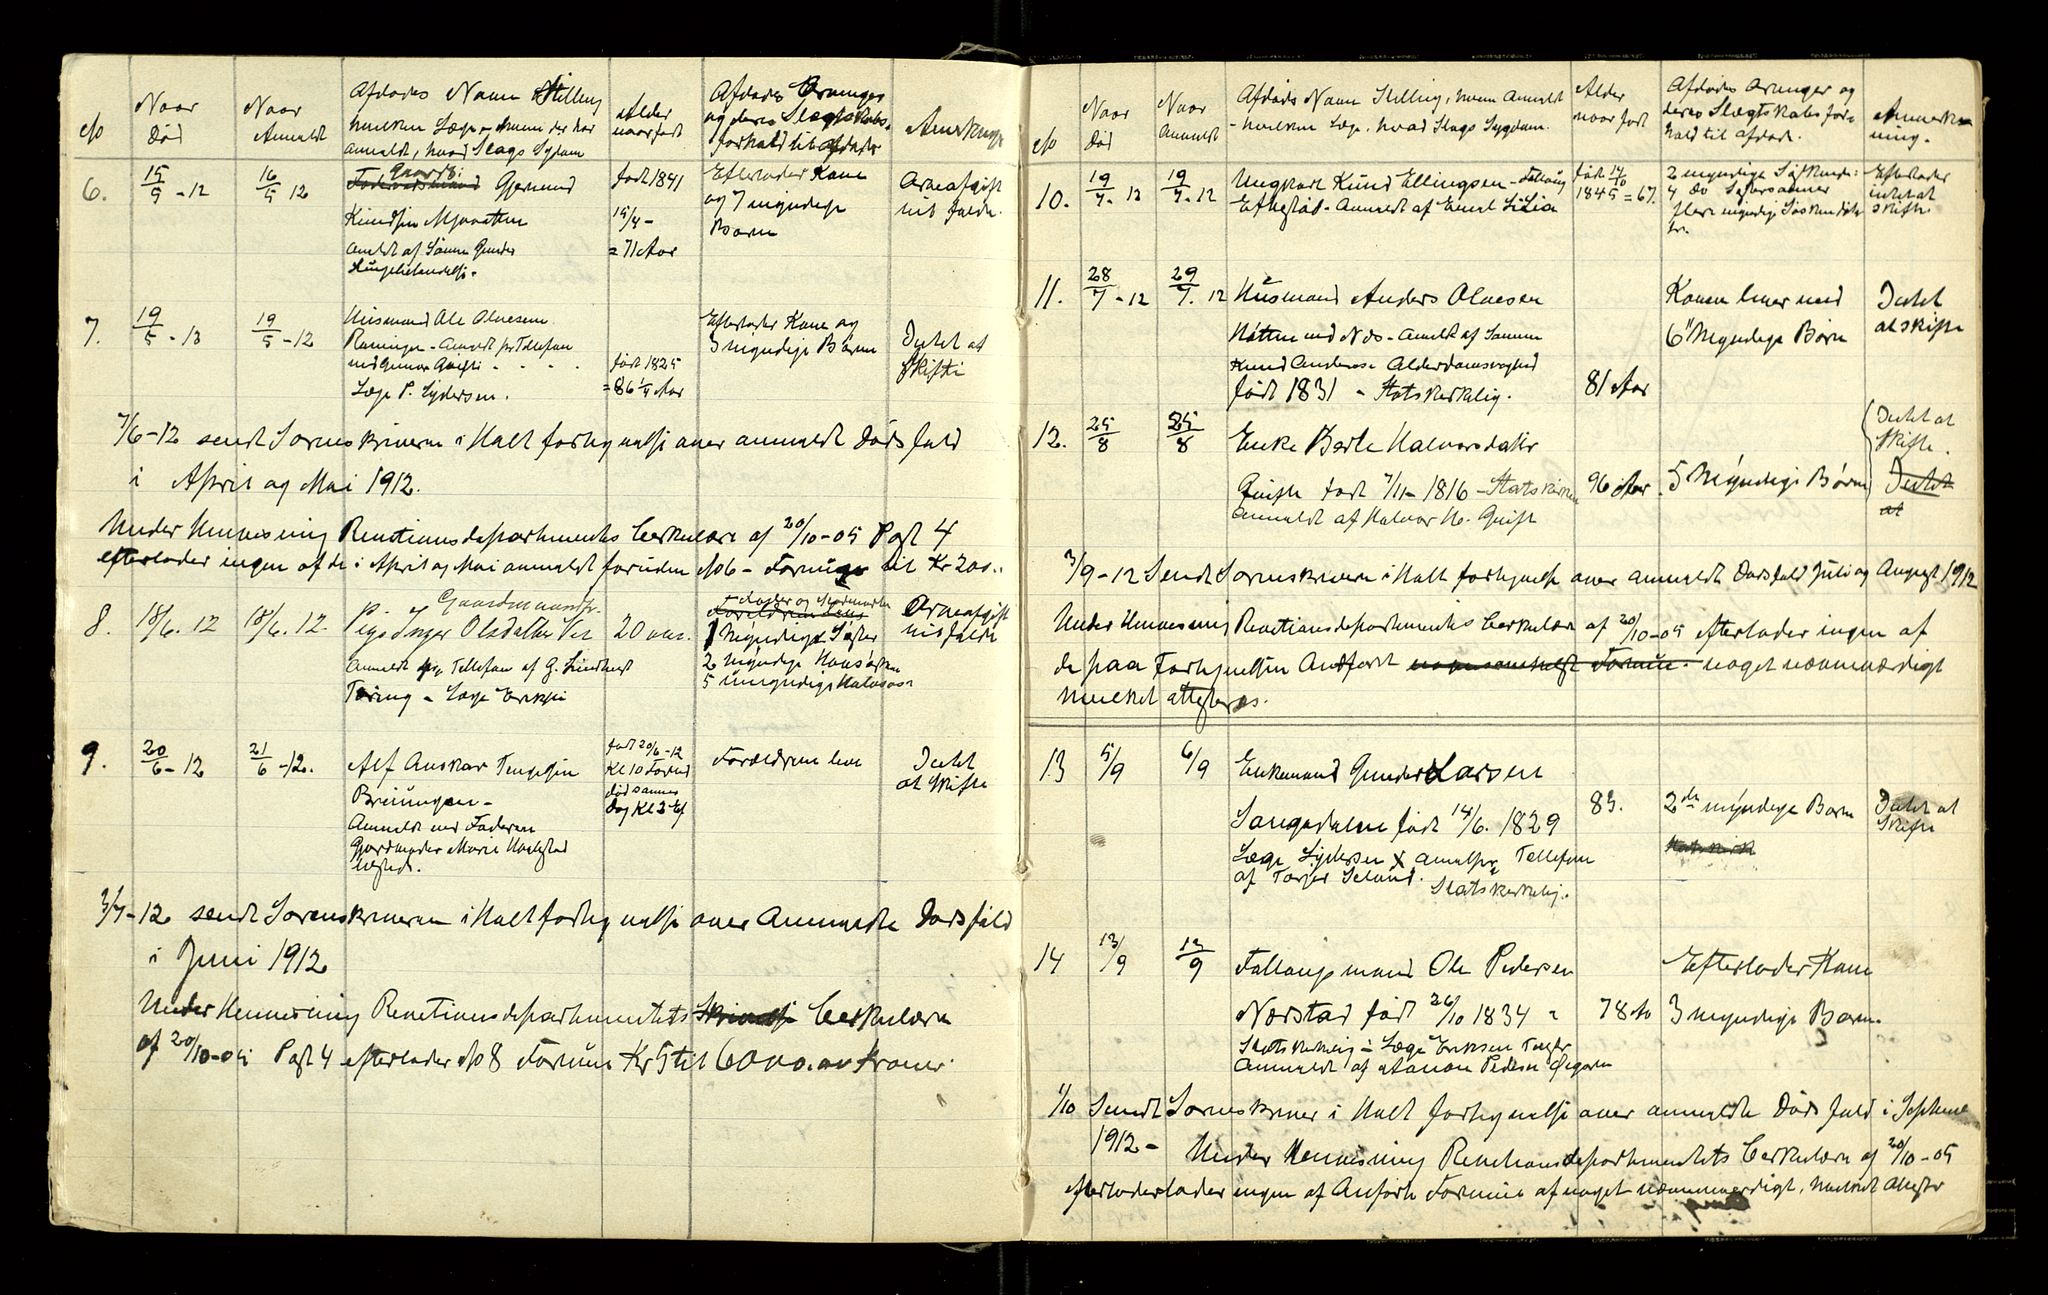 No
Naar
Død
Naar
Anmeldt
Afdødes Navn Stilling
hvilken Læge, hvem der har
anmeldt, hvad Slags Sygdom
Alder
naar født
Afdødes Arvinger
og deres Slægtskabs-
forhold til afdøde
Anmerkning
6.
15/5 - 12
16/5 12
Gaardbr.
Gjermund
Knudsen
anmeldt af Sønnen Gunder
født 1841
15/4 -
= 71 Aar
Efterlader Kone
og 7 myndige
Børn
Arveafgift
vil falde.
7.
19/5 - 12
19/5 - 12
Husmand Ole Olvesen
Anmeldt pr Telefon
Læge P. Sydersen.
født 1825
= 86 1/4 Aar
Efterlader Kone og
3 myndige Børn
Intet at
skifte
7/6 - 12 sendt Sorenskriveren i Holt fortegnelse over anmeldt Dødsfald
i April og Mai 1912.
Under Henvisning Revetionsdepartementets Cerkulære af 20/10 - 05 Post 4
efterlader ingen af de i April og Mai anmeldt foruden No 6 - Formue til Kr 200..
8.
18/6. 12
18/6. 12.
Gaardmandsdtr.
Pige Inger Olsdatter Ves
Anmeldt pr Telefon af G.
Tæring - Læge Eriksen
20 aar.
Foreldrene Leve
1 Myndige Søster
2 Myndige Halvsøsken
5 umyndige Halvsøsk
Arveafgift
vil falde
9.
20/6 - 12
21/6 - 12.
Alf Anskar Tengesen
Breiungen -
Anmeldt ved Faderen
Gjordmoder Marie
Ulgsted.
født 20/6 - 12
Kl 10 Formd
død samme
Dag Kl 3 Ef
Foreldrene leve
Intet
at Skifte
3/7 - 12 sendt Sorenskriveren i Holt fortegnelse over Anmeldte Dødsfald
i Juni 1912
Under Henvisning Revetionsdepartementets Cerkulære
af 20/10 - 05 Post 4 efterlader No 8 Formue Kr 5 til 6000. av Kroner.
No
Naar
Død
Naar
Anmeldt
Afdødes Navn Stilling, hvem Anmeldt
- hvilken Læge, hvad Slags Sygdom.
Alder
naar født
Afdødes Arvinger og
deres Slægtskabsfor-
hold til afdøde.
Anmerk-
ning.
10.
19/7 - 12
19/7 - 12
Ungkarl Knud Ellingsen - Fattig
Anmeldt af Emil Lilia
født 14/10
1845 = 67.
2 myndige Søskende
4 do Søstersønner
flere myndige Søskendebørn
Efterlader
intet at
skifte
11.
28/7 - 12
29/7. 12
Husmand Anders Olvesen
Hatten ved Næs - Anmeldt af Sønnen
Knud Andersen Alderdomssvaghed
født 1831 - Statskerkelig.
81 Aar
Konen lever med
6 Myndige Børn
Intet
at skifte
12.
25/8
25/8
Enke Berte Halvorsdatter
Qvifte født 7/11 - 1816 - Statskirken
Anmeldt af Halvor H. Qvifte
96 Aar
5 Myndige Børn
Intet at
Skifte.
Intet
at
3/9 - 12 Sendt Sorenskriveren i Holt fortegnelse over anmeldte Dødsfald Juli og August 1912
Under Henvisning Revetionsdepartementets Cerkulære af 20/10 - 05 efterlader ingen af
de paa Fortegnelsen Anført Formue. noget nævneværdigt
hvilket attesteres.
13
5/9
6/9
Enkemand Gunder Larsen
Songedalen født 14/6. 1829
Læge Sydersen anmeldt pr Telefon
af Torjus Selund. Statskerkelig.
83.
2de myndige Børn
Intet at
Skifte
14
13/9
13/9
Fattigmand Ole Pedersen
Nærstad født 26/10 1834 -
Statskerkelig - Læge Eriksen
Anmeldt af Aanon Pedersen
78 Aar
Efterlader Kone
3 Myndige Børn.
1/10 Sendt Sorenskriver i Holt fortegnelse over anmeldte Dødsfald i September
1912 - Under Henvisning Revetionsdepartementets Cerkulære af 20/10 - 05
efterladerlader ingen af Anførte Formue af noget nævneværdigt, hvilket Attester